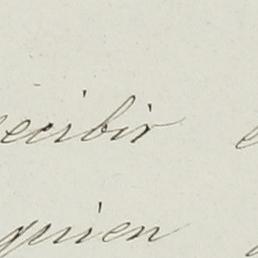 recibir
quien